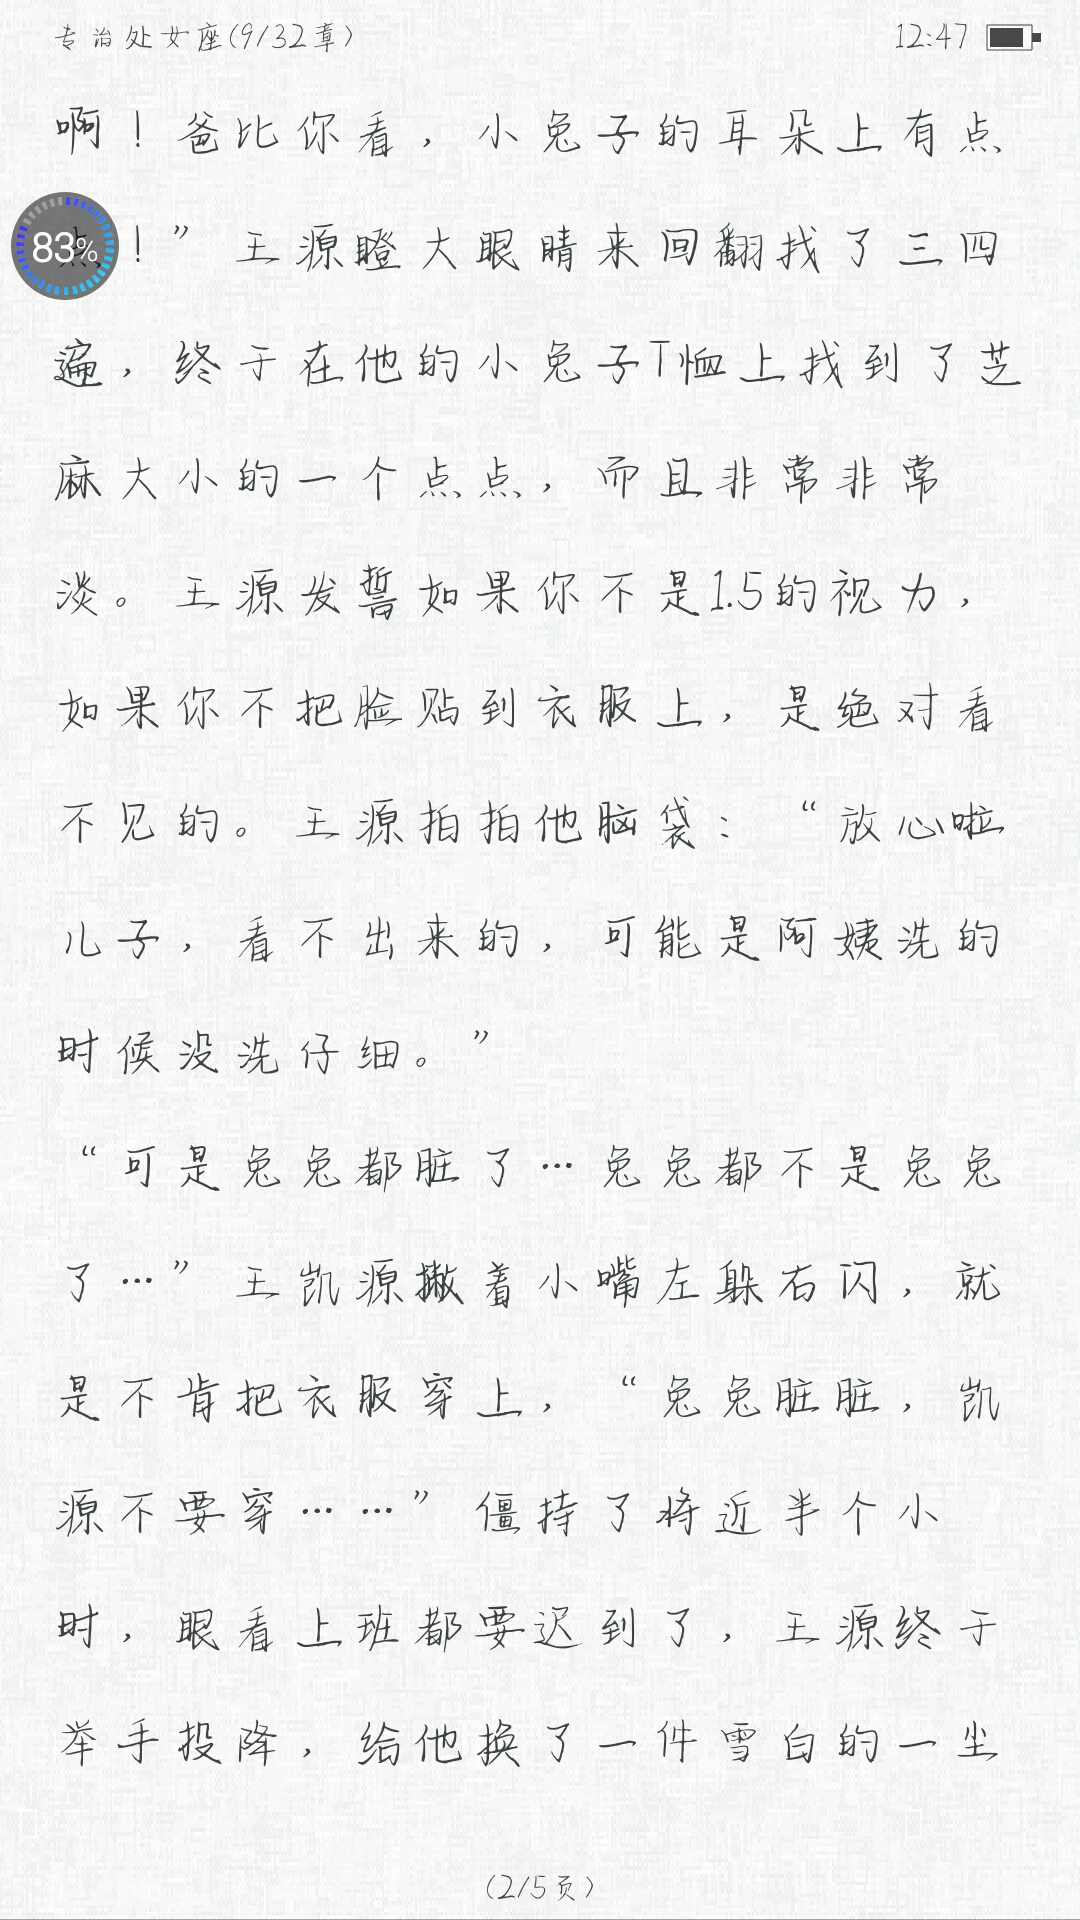 专治处女座(9/32章) 12:47
啊！爸比你看，小兔子的耳朵上有点
点！” 王源瞪大眼睛来回翻找了三四
83%
遍，终于在他的小兔子T恤上找到了芝
麻大小的一个点点，而且非常非常
淡。王源发誓如果你不是1.5的视力，
如果你不把脸贴到衣服上，是绝对看
不见的。王源拍拍他脑袋：“放心啦
儿子，看不出来的，可能是阿姨洗的
时候没洗仔细。”
“可是兔兔都脏了…兔兔都不是兔兔
了…” 王凯源撇着小嘴左躲右闪，就
是不肯把衣服穿上，“兔兔脏脏，凯
源不要穿……” 僵持了将近半个小
时，眼看上班都要迟到了，王源终于
举手投降，给他换了一件雪白的一尘
(2/5页)